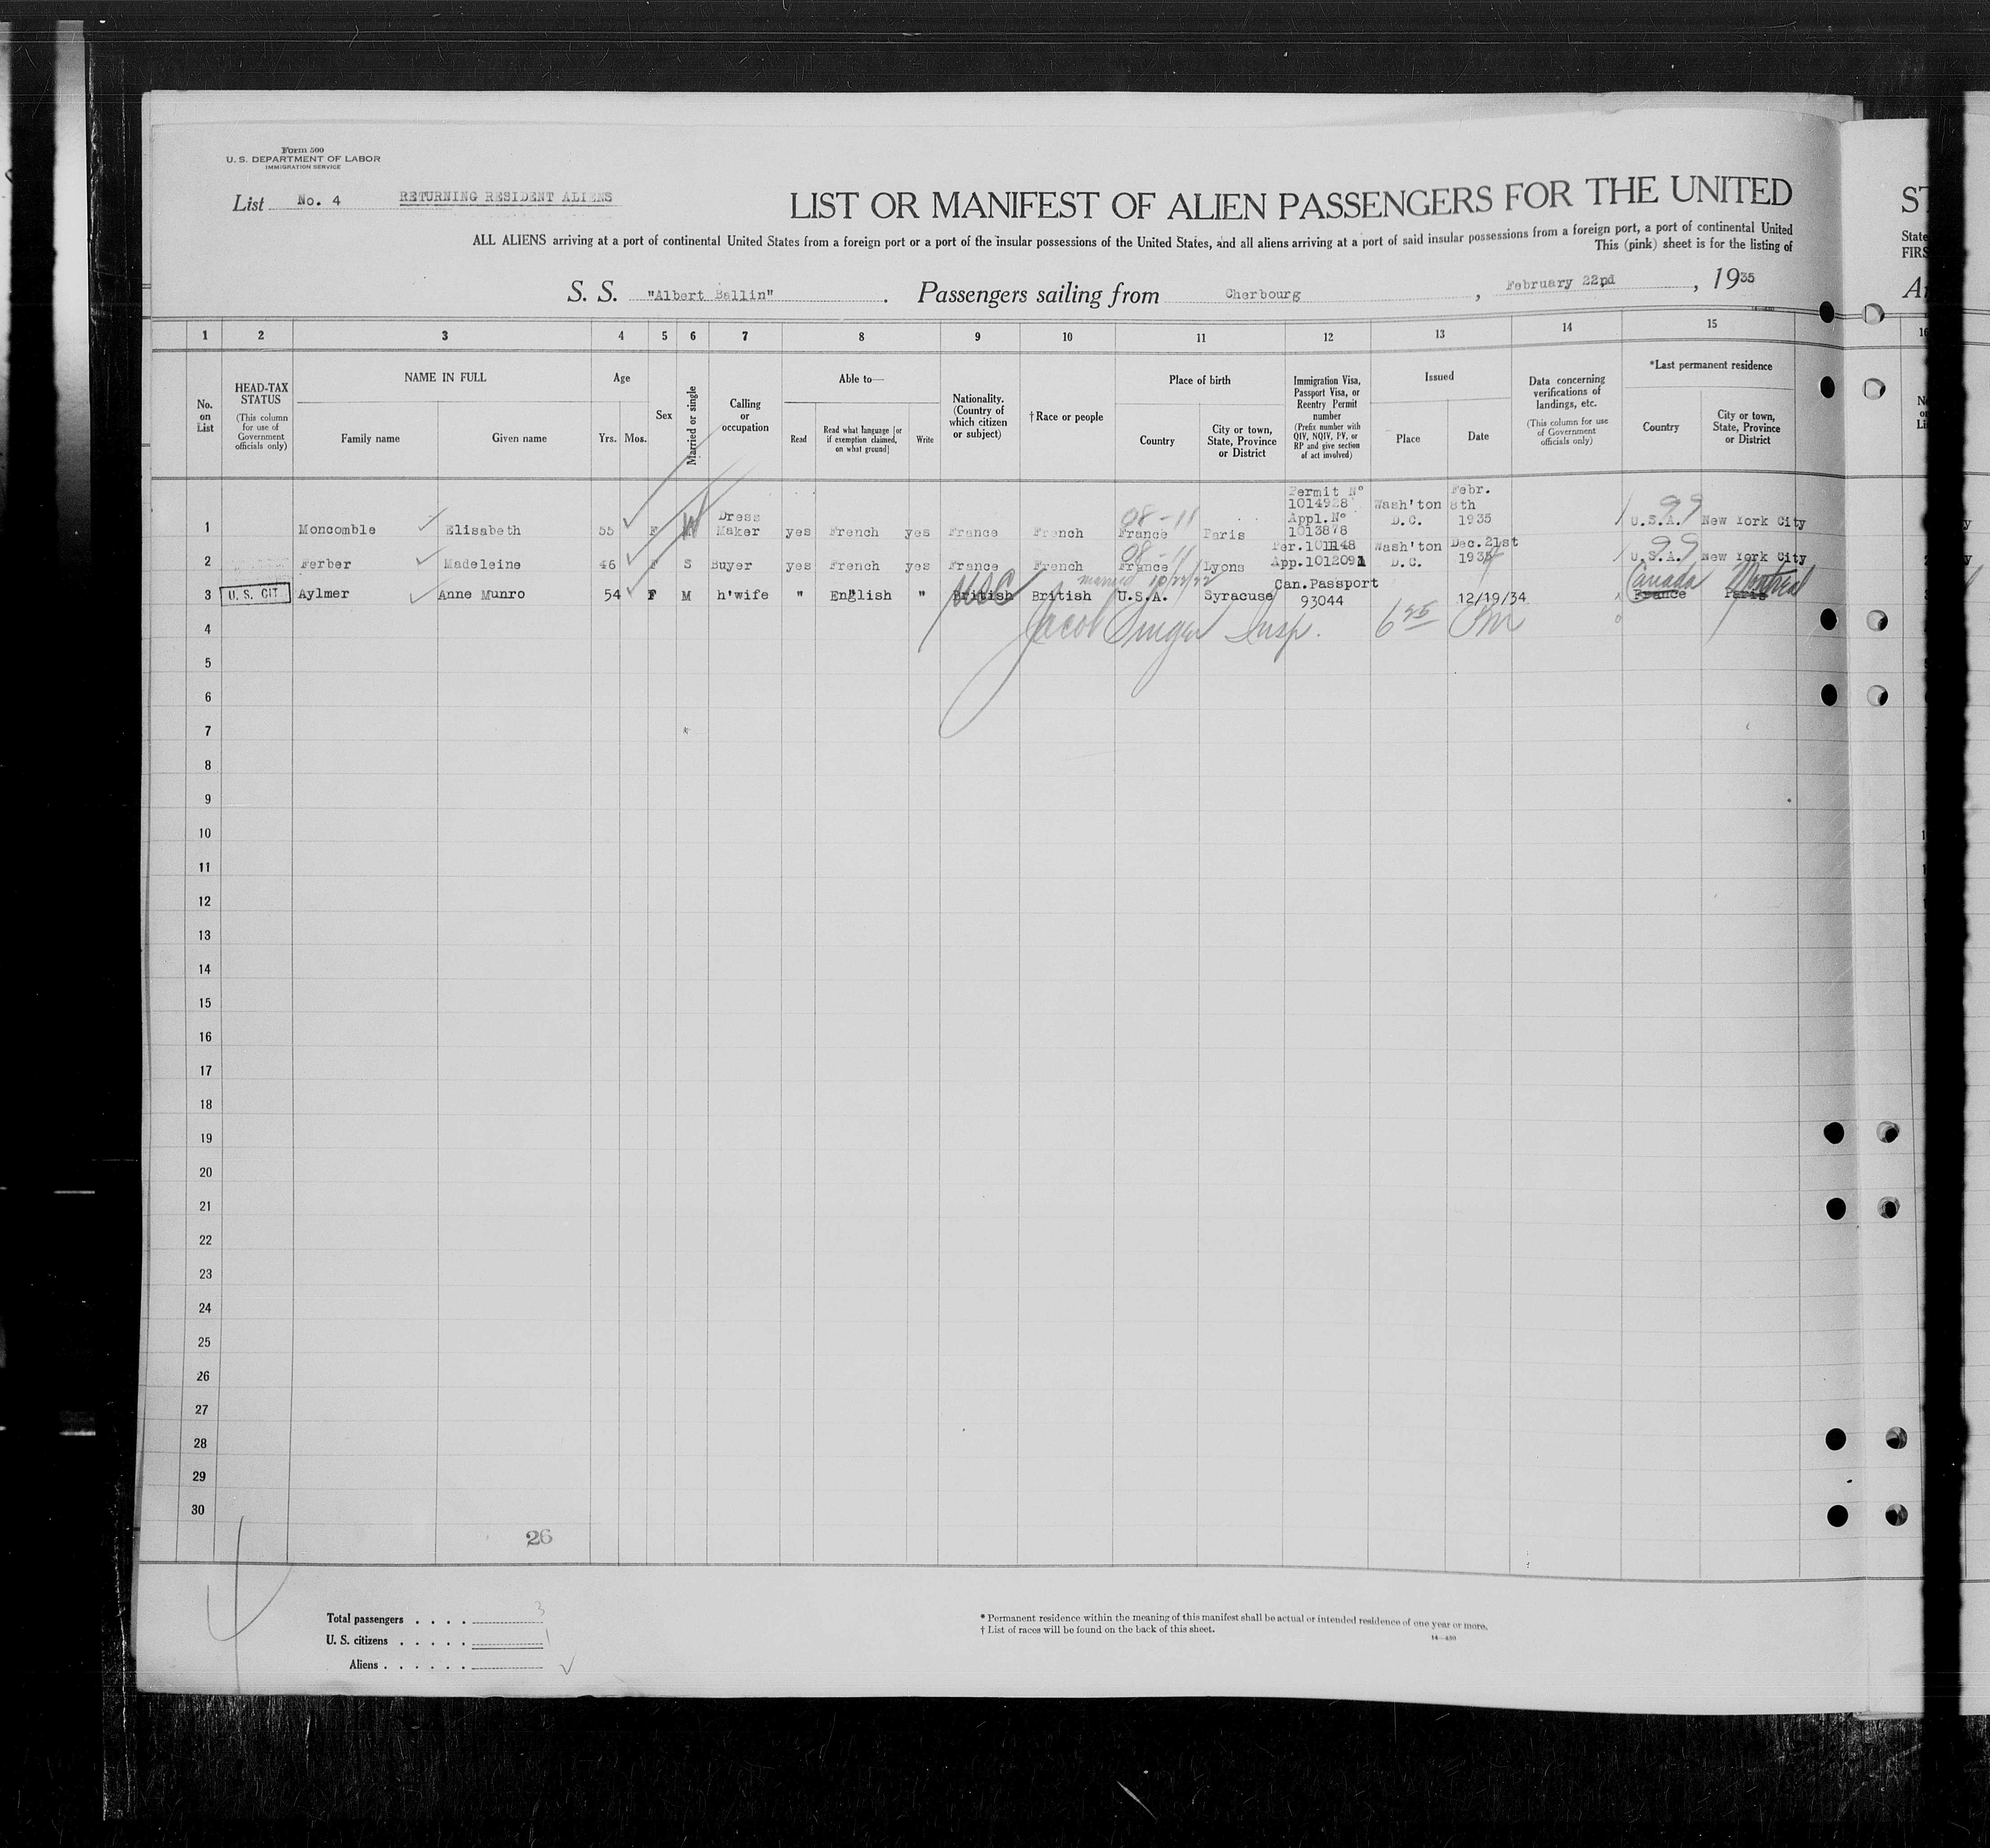 Form 500
U. S. DEPARTMENT OF LABOR
IMMIGRATION SERVICE
List No. 4 RETURNING RESIDENT ALIENS
LIST OR MANIFEST OF ALIEN PASSENGERS FOR THE UNITED
ST
ALL ALIENS arriving at a port of continental United States from a foreign port or a port of the insular possessions of the United States, and all aliens arriving at a port of said insular possessions from a foreign port, a port of continental United
State
This (pink) sheet is for the listing of
FIRS
S. S. "Albert Ballin" . Passengers sailing from Cherbourg , February 22nd , 1935
1 2 3 4 5 6 7 8 9 10 11 12 13 14 15 16
No. on List
HEAD-TAX STATUS
(This column for use of Government officials only)
NAME IN FULL
Family name Given name
Age
Yrs. Mos.
Sex
Married or single
Calling or occupation
Able to—
Read
Read what language [or if exemption claimed, on what ground]
Write
Nationality. (Country of which citizen or subject)
†Race or people
Place of birth
Country
City or town, State, Province or District
Immigration Visa, Passport Visa, or Reentry Permit number
(Prefix number with QIV, NQIV, PV, or RP and give section of act involved)
Issued
Place Date
Data concerning verifications of landings, etc.
(This column for use of Government officials only)
*Last permanent residence
Country
City or town, State, Province or District
1 Moncomble Elisabeth 55 F W Dress Maker yes French yes France French 08-11 France Paris Permit N° 1014928 Appl. N° 1013878 Wash'ton D.C. Febr. 8th 1935 99 U.S.A. New York City
2 Ferber Madeleine 46 F S Buyer yes French yes France French 08-11 France Lyons App.1012091 Wash'ton D.C. Dec. 21st 1934 99 U.S.A. New York City
3 U. S. CIT. Aylmer Anne Munro 54 F M h'wife " English " British USC British married 10/22/22 U.S.A. Syracuse Can.Passport 93044 12/19/34 France Canada Paris Montreal
4 Jacob Singer Insp. 6 25 PM
5
6
7
8
9
10
11
12
13
14
15
16
17
18
19
20
21
22
23
24
25
26
27
28
29
30
26
Total passengers . . . . 3
U. S. citizens . . . . . 1
Aliens . . . . . .
* Permanent residence within the meaning of this manifest shall be actual or intended residence of one year or more.
† List of races will be found on the back of this sheet.